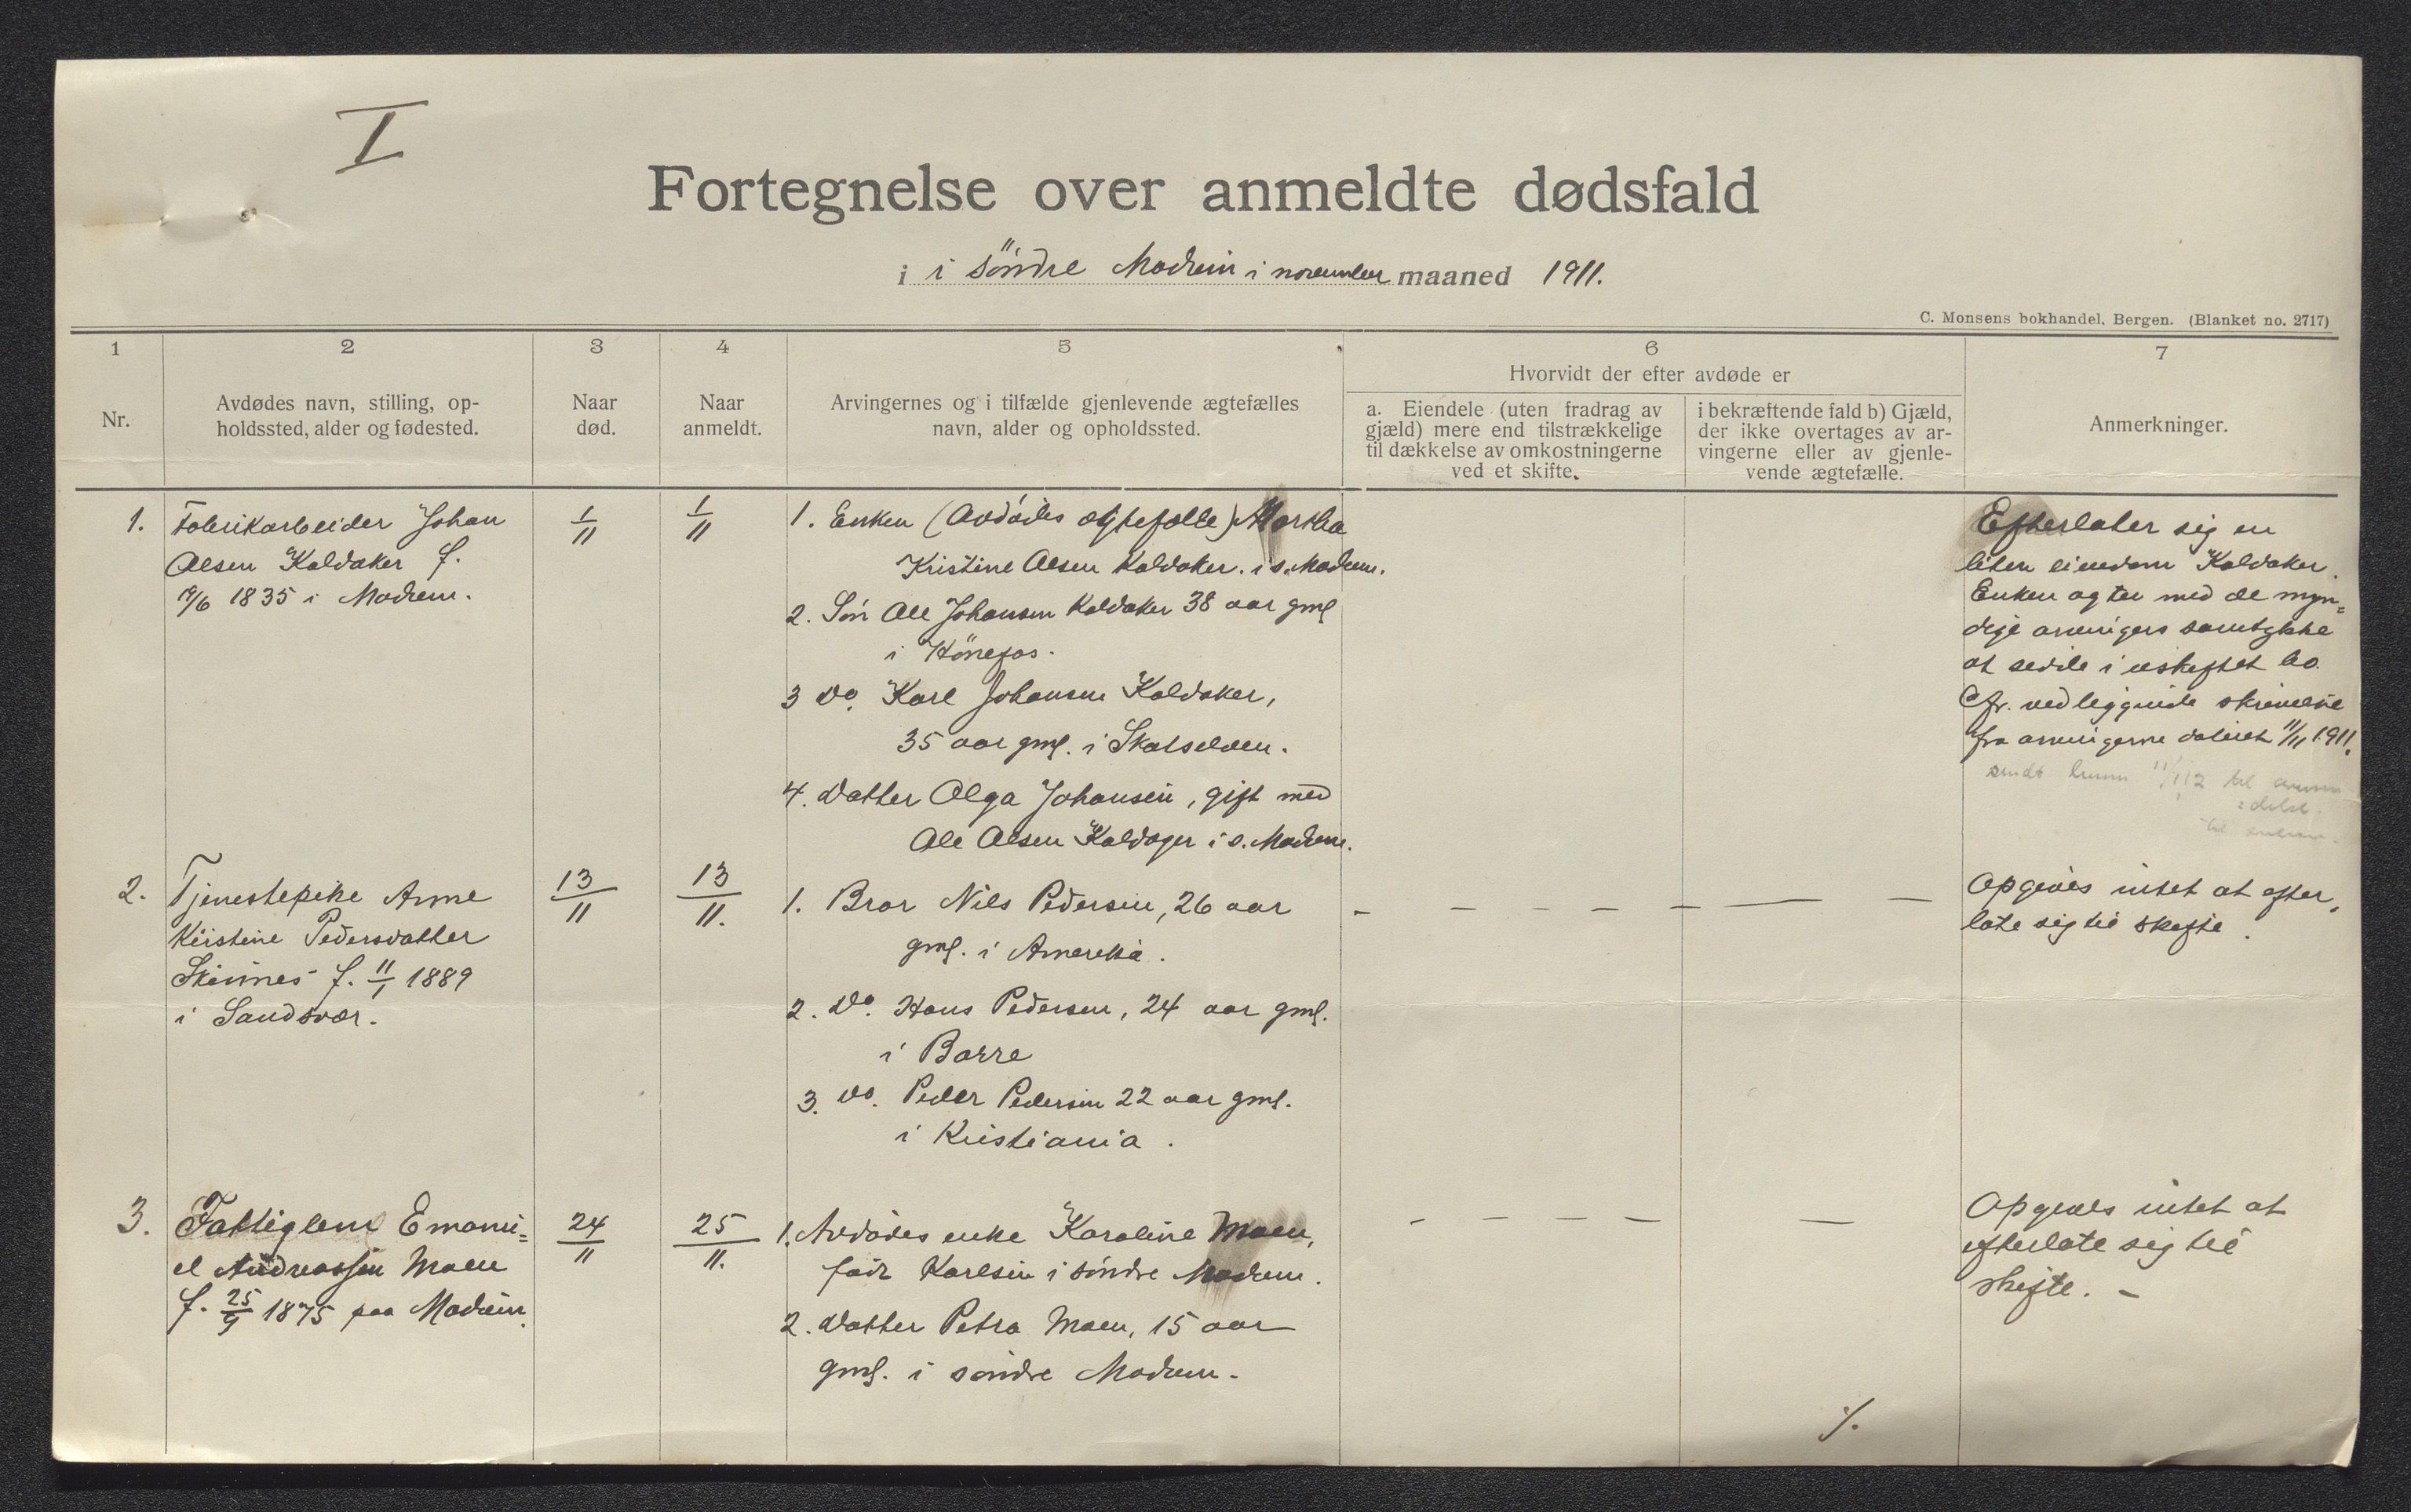 I
Fortegnelse over anmeldte dødsfald
i i söndre Modum i november maaned 1911.
C. Monsens bokhandel, Bergen. (Blanket no. 2717)
1 2 3 4 5 6 7
Hvorvidt der efter avdøde er
Nr.
Avdødes navn, stilling, op-
holdssted, alder og fødested.
Naar
død.
Naar
anmeldt.
Arvingernes og i tilfælde gjenlevende ægtefælles
navn, alder og opholdssted.
a. Eiendele (uten fradrag av
gjæld) mere end tilstrækkelige
til dækkelse av omkostningerne
ved et skifte.
i bekræftende fald b) Gjæld,
der ikke overtages av ar-
vingerne eller av gjenle-
vende ægtefælle.
Anmerkninger.
1.
Fabrikarbeider Johan
Olsen Kaldaker f.
1835 i Modum.
1/11
1/11
1. Enken (Avdödes ægtefælle) Martha
Kristine Olsen Kaldaker. i s. Modum.
2. Sön Ole Johansen Kaldaker 38 aar gml
i Hönefos.
3 do. Karl Johansen Kaldaker,
35 aar gml. i Skotselven.
4. Datter Olga Johansen, gift med
Ole Olsen Kaldager i s. Modum.
Efterlater sig en
liten eiendom Kaldaker.
Enken agter med de myn=
dige arvingers samtykke
at sidde i uskiftet bo.
Cfr. vedliggende skrivelse
fra arvingerne dateret 11/11 1911.
sendt 11/1 12 til
til
2.
Tjenestepike Anne
Kirstine Pedersdatter
Skinnes f. 11/1 1889
i Sandsvær.
13/11
13/11.
1. Bror Nils Pedersen, 26 aar
gml. i Amerika.
2. do. Hans Pedersen, 24 aar gml.
i Borre
3. do. Peder Pedersen 22 aar gml.
i Kristiania.
- - - - - — —
Opgives intet at efter,
late sig til skifte.
3.
Fattiglem Emanu=
el Andreassen Moen
f. 25/9 1875 paa Modum.
24/11
25/11.
1. Avdödes enke Karoline Moen,
född Karlsen i söndre Modum.
2. Datter Petra Moen, 15 aar
gml. i söndre Modum.
- - - - —
Opgives intet at
efterlate sig til
skifte. -
·/.